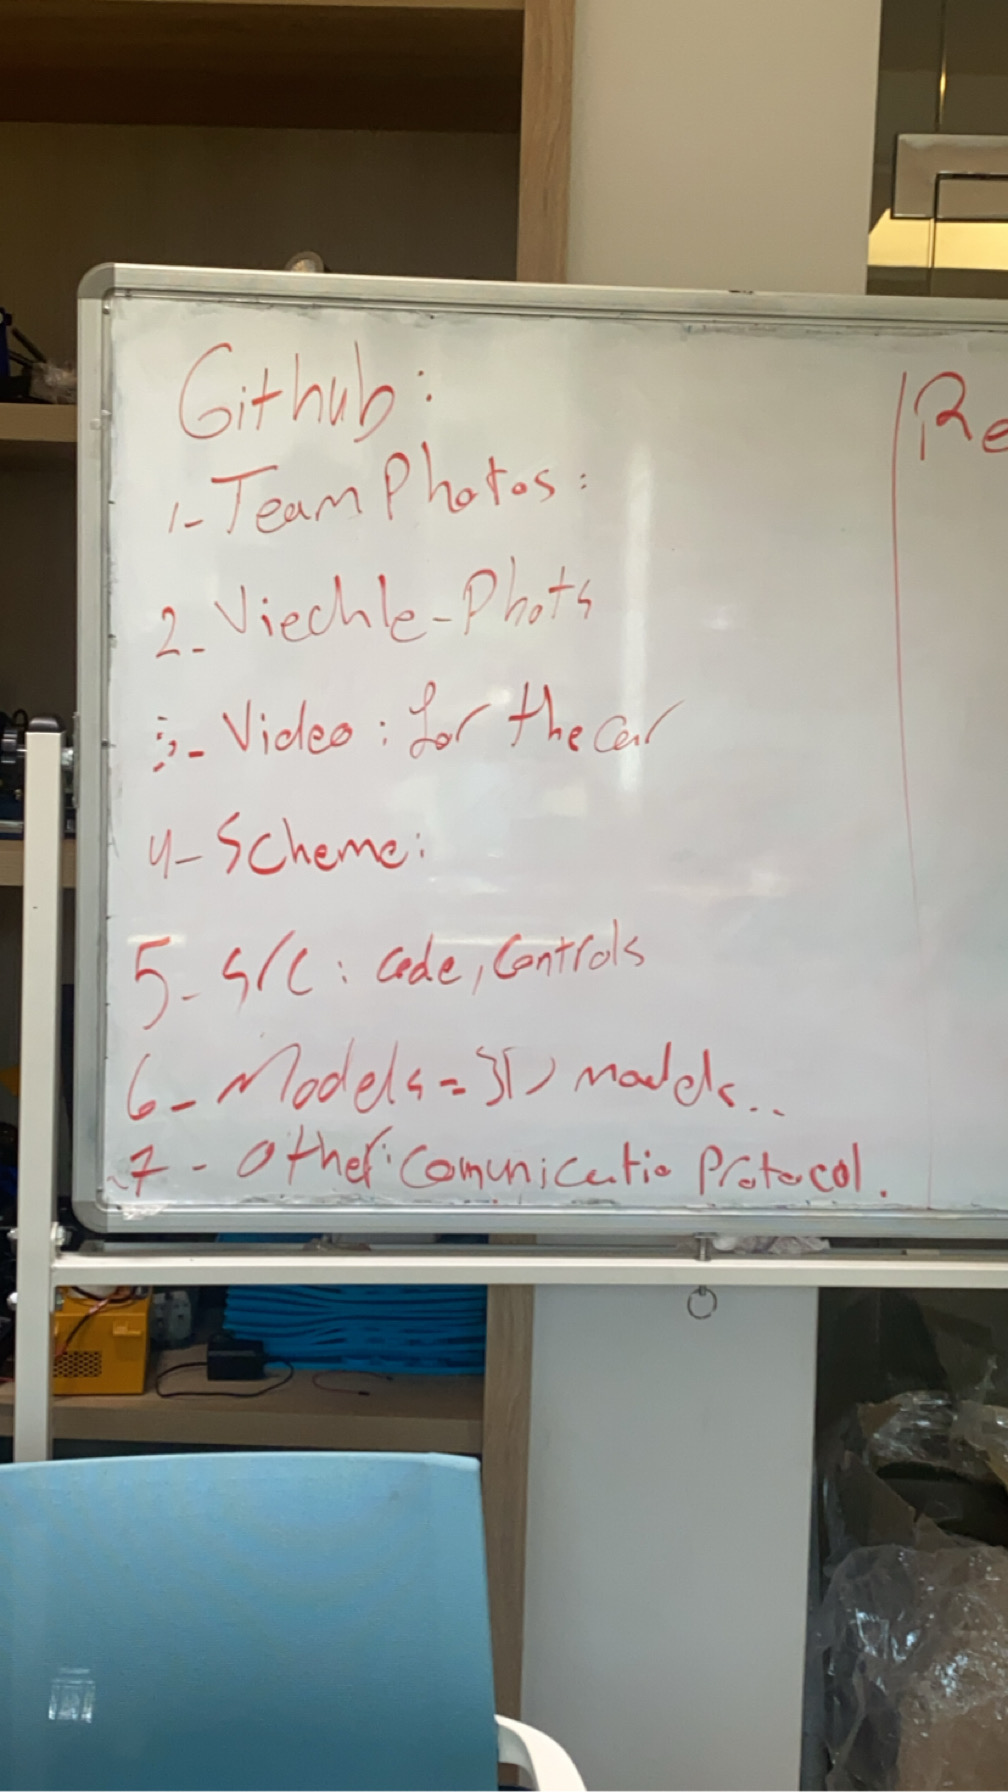 Github:
1- Team Photos:
2- Viechle-Phots
3- Video: for the car
4- Scheme:
5- S/C: code, Controls
6- Models = 3D models..
7- Other: Comunicatio Protocol.
Re